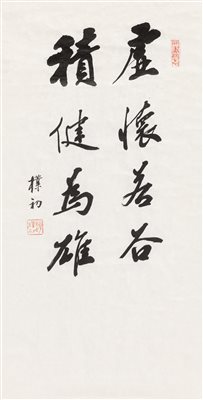 虚懷若谷
積健為雄
樸初